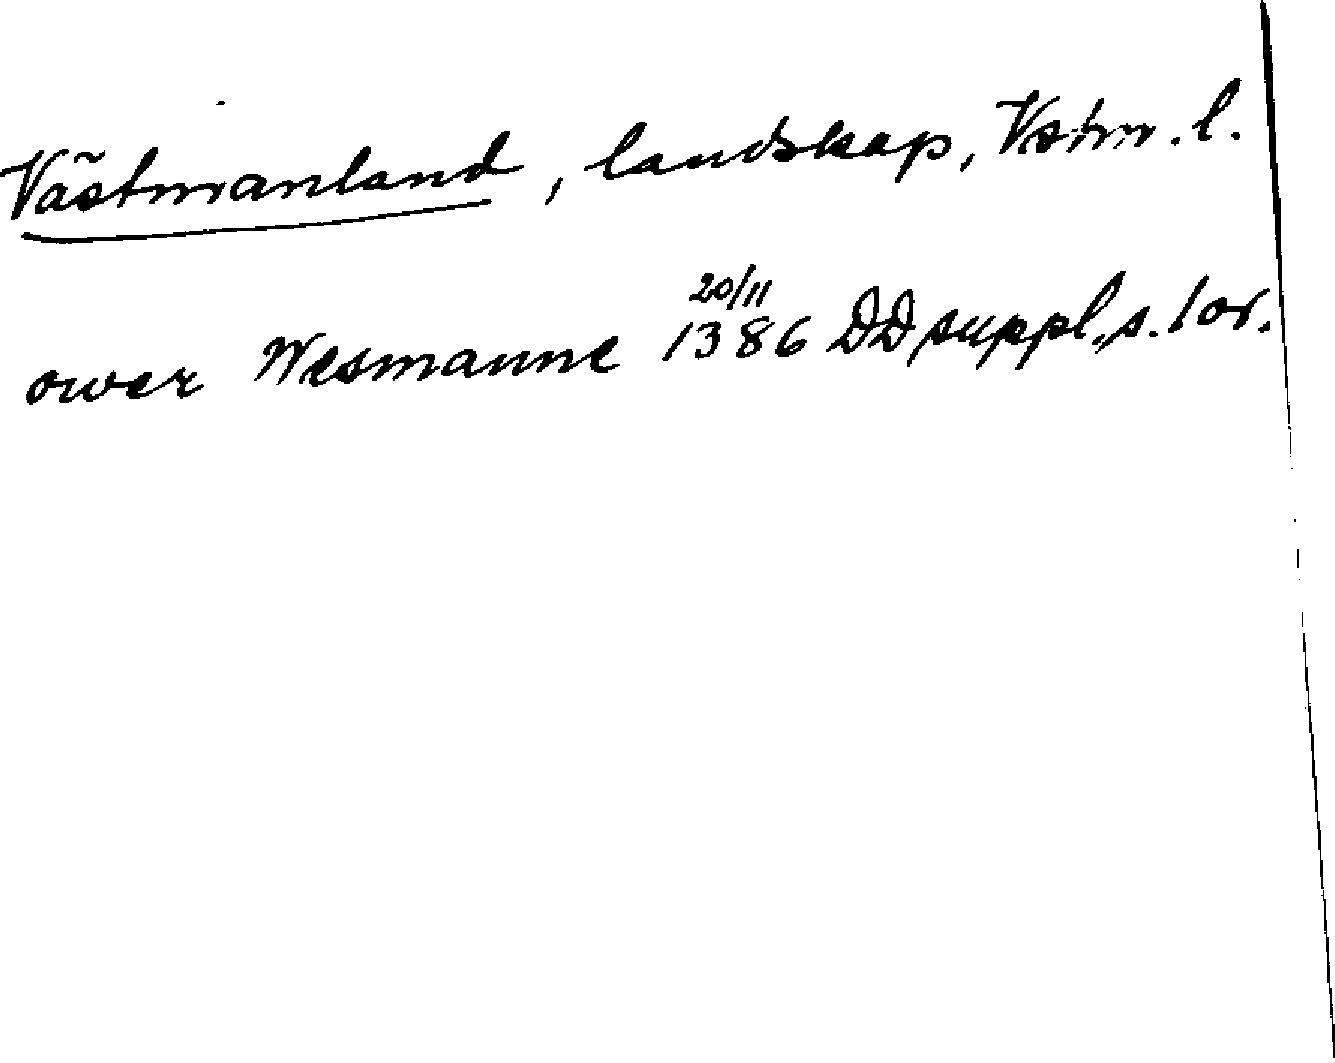 Västmanland, landskap, Vstm. l.
ower Wesmanne 20/11 1386 DD suppl., s. 101.